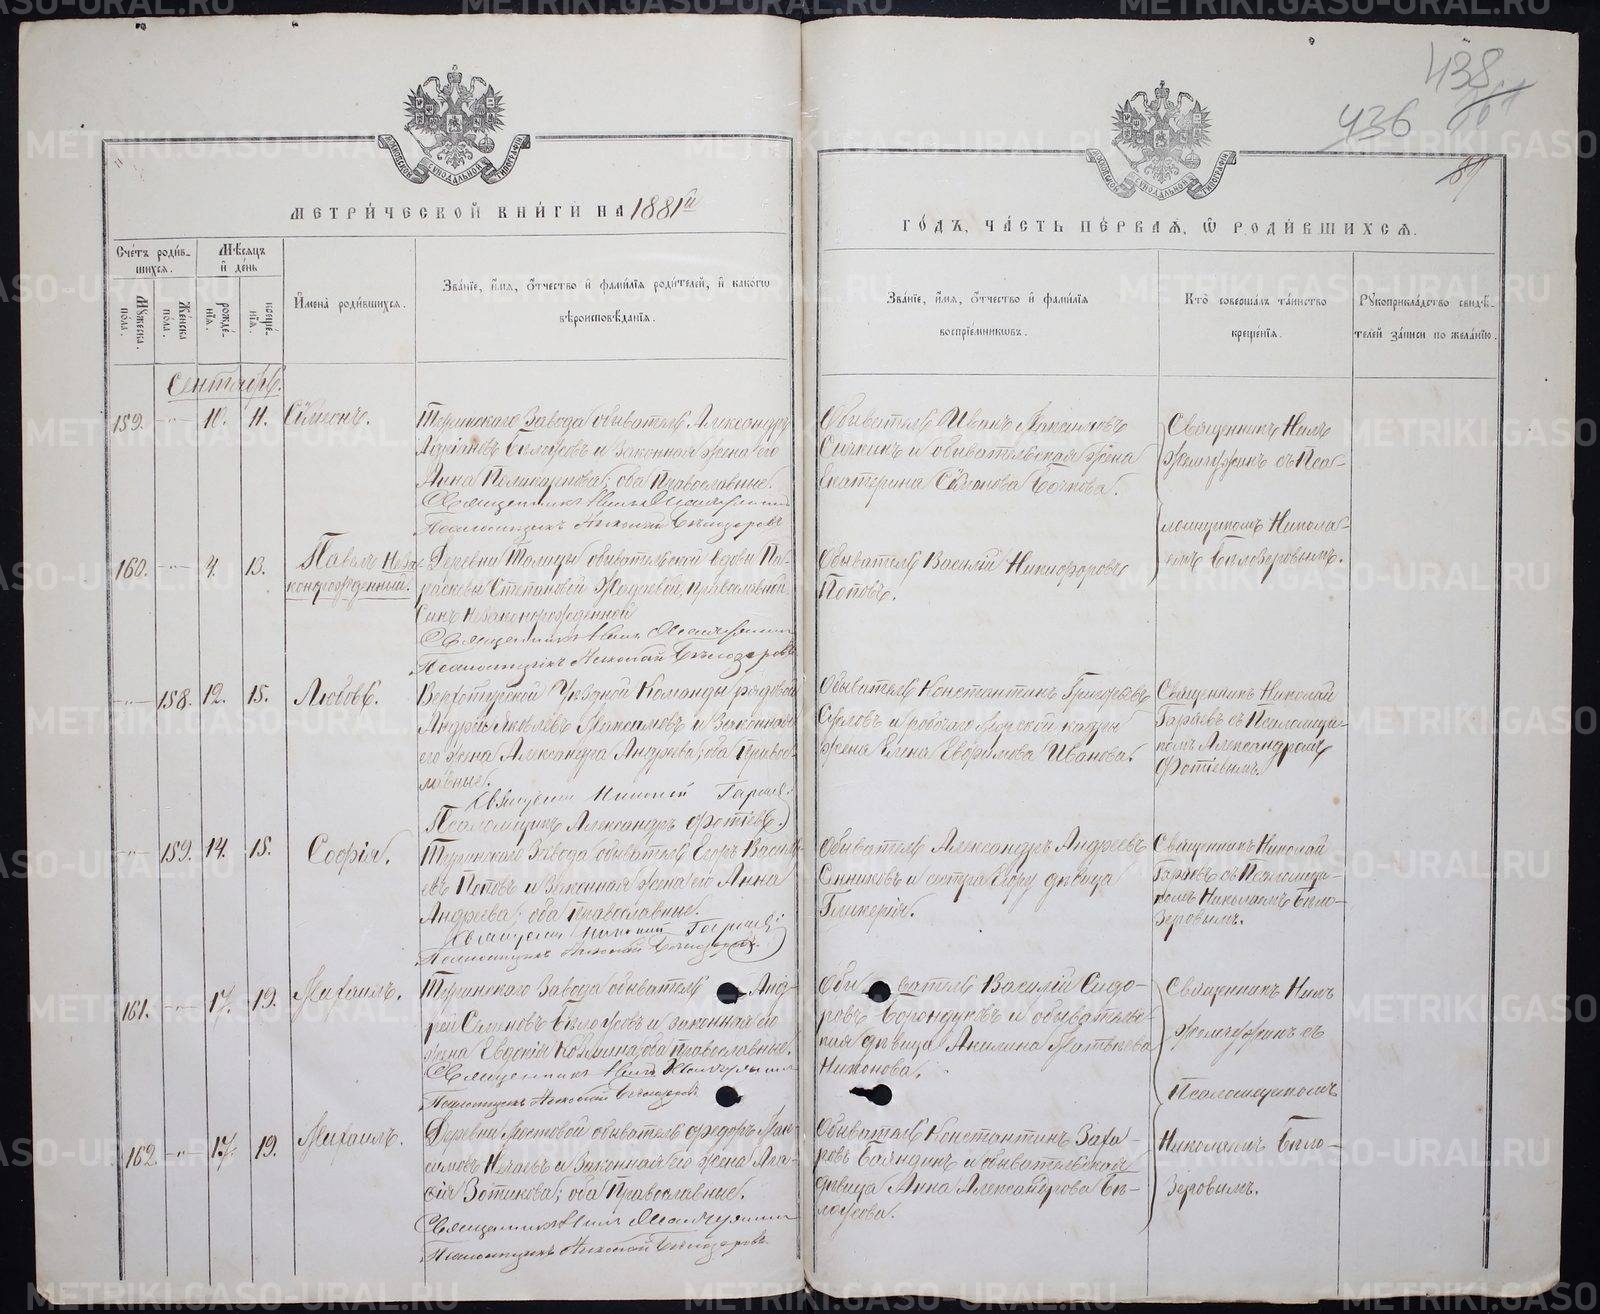 438
436
МЕТРИ́ЧЕСКОЙ КНИ́ГИ НА 1881й
ГО́ДЪ, ЧА́СТЬ ПЕ́РВАЯ, Ѡ РОДИ́ВШИХСЯ.
Сче́тъ роди́в-
шихся.
Мꙋжеска
по́ла.
Же́нска
по́ла.
Мѣ́сяцъ
и҆ де́нь
рожде́-
нїя.
креще́-
нїя.
И҆мена̀ роди́вшихся.
Зва́нїе, и҆́мя, ѻ҆́тчество и҆ фами́лїя роди́телей, и҆ како́гѡ
вѣроисповѣ́данїя.
Зва́нїе, и҆́мя, ѻ҆́тчество и҆ фами́лїя
воспрїе́мникѡвъ.
Кто̀ соверша́лъ та́инство
креще́нїя.
Рꙋкоприкла́дство свидѣ́-
телей за́писи по жела́нїю.
Сентябрь.
159. 10. 11. Сѵмеонъ.
Туринскаго Завода обыватель Александръ
Бѣлоусовъ и законная жена его
Анна Поликарпова; оба Православные.
Священникъ Нилъ
Псаломщикъ Николай Бѣлозеровъ
Обыватель Иванъ Максимовъ
Сичкинъ и обывательская жена
Екатерина Бочкова.
Священникъ Нилъ
съ Пса-
ломщикомъ Никола-
емъ Бѣлозеровымъ.
160. 4. 13. Павелъ Неза-
коннорожденный.
Деревни Талицы обывательской вдовы Па-
раскевы Степановой Православной
Сынъ Незаконнорожденной
Священникъ Нилъ
Псаломщикъ Николай Бѣлозеровъ
Обыватель Василій Никифоровъ
Поповъ.
158. 12. 15. Любовь.
Верхотурской Уѣздной Команды рядовой
Андрей Яковлевъ Максимовъ и Законная
его жена Александра Андреева; оба Право-
славные.
Священникъ Николай Гаряевъ
Псаломщикъ Александръ Фотіевъ.
Обыватель Константинъ Григорьевъ
жена Елена Евфимова Иванова.
Священникъ Николай
Гаряевъ съ Псаломщи-
комъ Александромъ
Фотіевымъ.
159. 14. 15. Софія.
Туринскаго Завода обыватель Егоръ Василь-
евъ Поповъ и Законная жена его Анна
Андреева; оба православные.
Священникъ Николай Гаряевъ
Псаломщикъ Николай Бѣлозеровъ.
Обыватель Александръ Андреевъ
и сестра Егору дѣвица
Гликерія.
Священникъ Николай
Гаряевъ съ Псаломщи-
комъ Николаемъ Бѣло-
зеровымъ.
161. 17. 19. Михаилъ.
Туринскаго Завода обыватель Анд-
рей Семеновъ Бѣлоусовъ и законная его
жена Евдокія Козмина; оба православные.
Священникъ Нилъ
Псаломщикъ Николай Бѣлозеровъ
Обыватель Василій Сидо-
ровъ Борондуковъ и обыватель-
ская дѣвица Акилина Матвѣева
Никонова.
Священникъ Нилъ
съ
Псаломщикомъ
Николаемъ Бѣло-
зеровымъ.
162. 17. 19. Михаилъ.
Деревни Мостовой обыватель Федоръ Мак-
симовъ Нечаевъ и Законная его жена Ага-
фія Зотикова; оба Православные.
Священникъ Нилъ
Псаломщикъ Николай Бѣлозеровъ
Обыватель Константинъ Заха-
ровъ Баяндинъ и обывательская
дѣвица Анна Александрова Бѣ-
лоусова.
METRIKI.GASO-URAL.RU